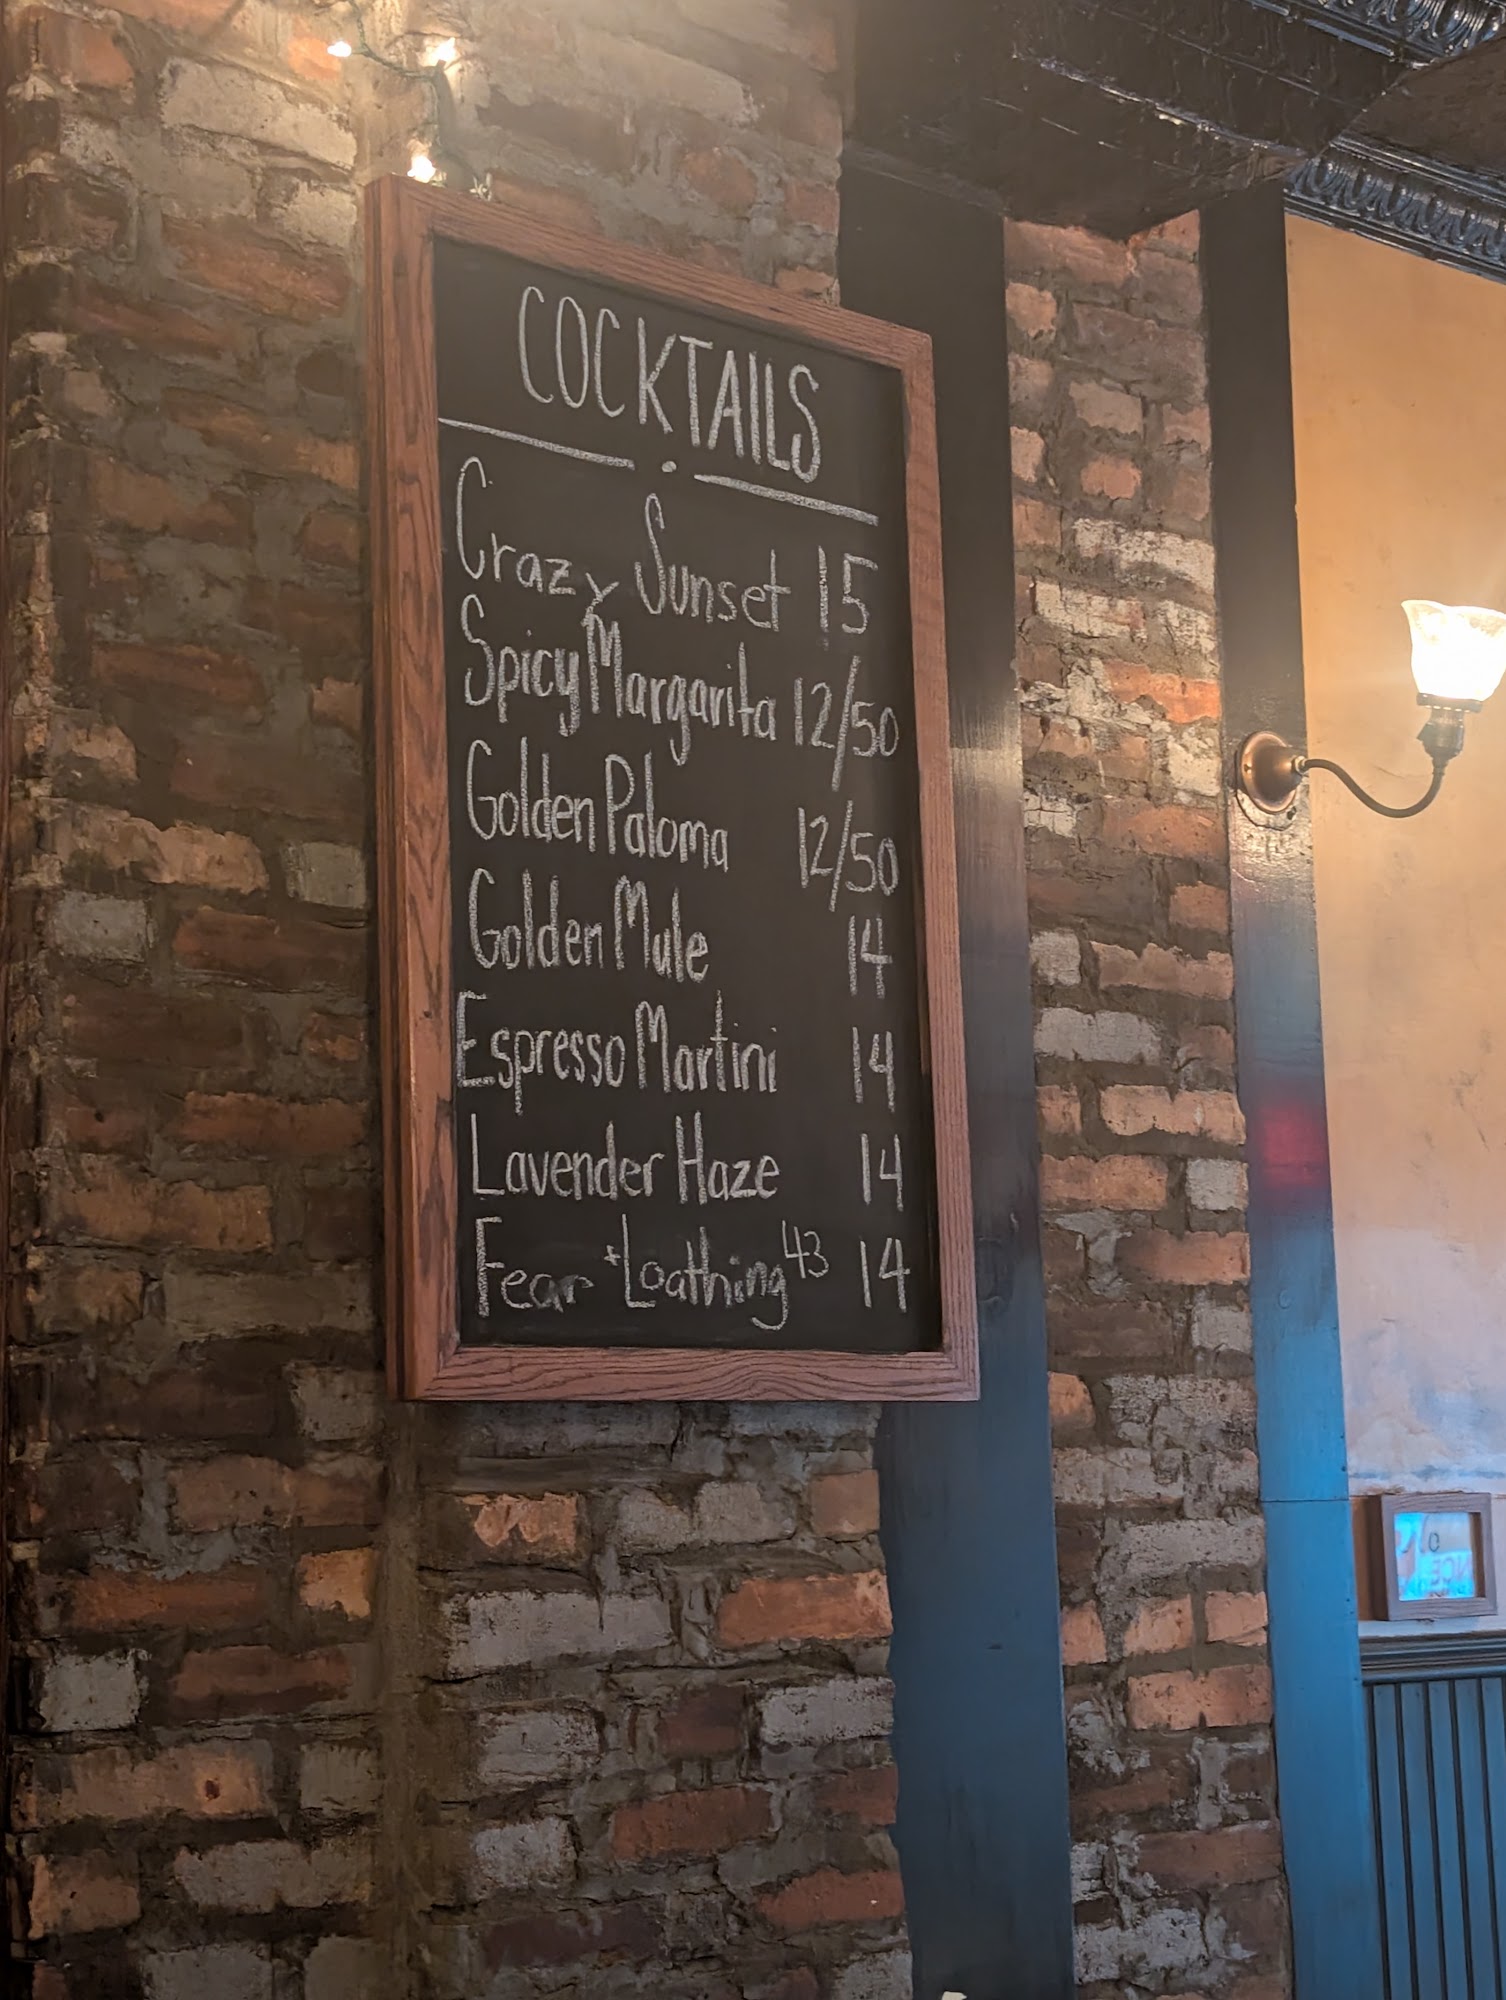 COCKTAILS
Crazy Sunset 15
Spicy Margarita 12/50
Golden Paloma 12/50
Golden Mule 14
Espresso Martini 14
Lavender Haze 14
Fear + Loathing 43 14